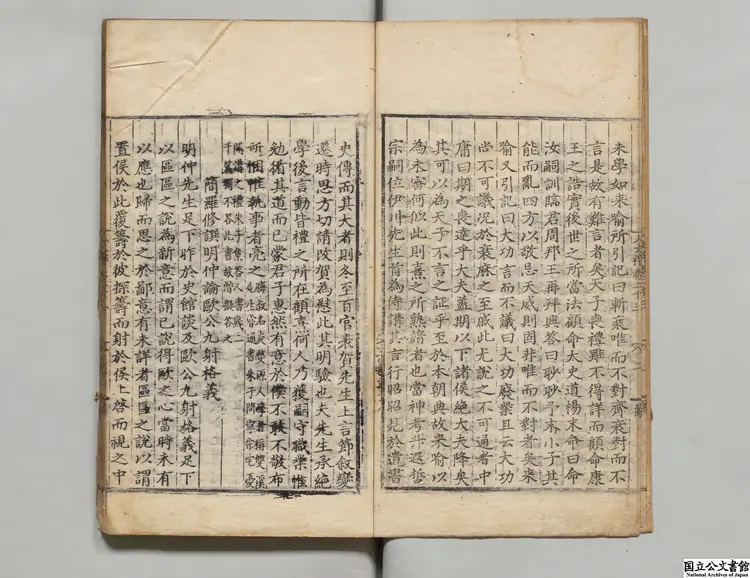 未學如來喻所引記曰斬衰唯而不對齊衰對而不
言是故有難言者矣天子喪禮雖不得詳而顧命康
王之誥實後世之所當法顧命太史道揚末命曰命
汝嗣訓臨君周邦王再拜興答曰眇眇予末小子其
能而亂四方以敬忌天威則固非唯而不對者矣來
喻又引記曰大功言而不議曰大功廢業且云大功
尚不可議况於衰麻之至戚此尤說之不可通者中
庸曰期之喪達乎大夫蓋期以下諸侯絶大夫降矣
其可以為天子不言之証乎至於本朝典故來喻以
為未審何似此則熹之所熟諳者也當神考升遐哲
宗嗣位伊川先生首為侍講其言行昭昭見於遺書
史傳而其大者則冬至百官表賀先生上言節叙變
遷時思方切請改賀為慰此其明驗也夫先生承絶
學後言動皆禮之所在顧熹何人乃獲嗣守職業惟
勉循其道而已蒙君子惠然有意於僕不敢不敬布
所悃惟執事者亮之
千萬
簡羅修撰明仲論歐公九射格義
明仲先生足下昨於史館談及歐公九射格義足下
以區區之說為新意而謂已說得歐之心當時未有
以應也歸而思之於鄙意有未詳者區區之說以謂
置侯於此覆籌於彼探籌而射於侯上啓而視之中
国立公文書館
National Archives of Japan